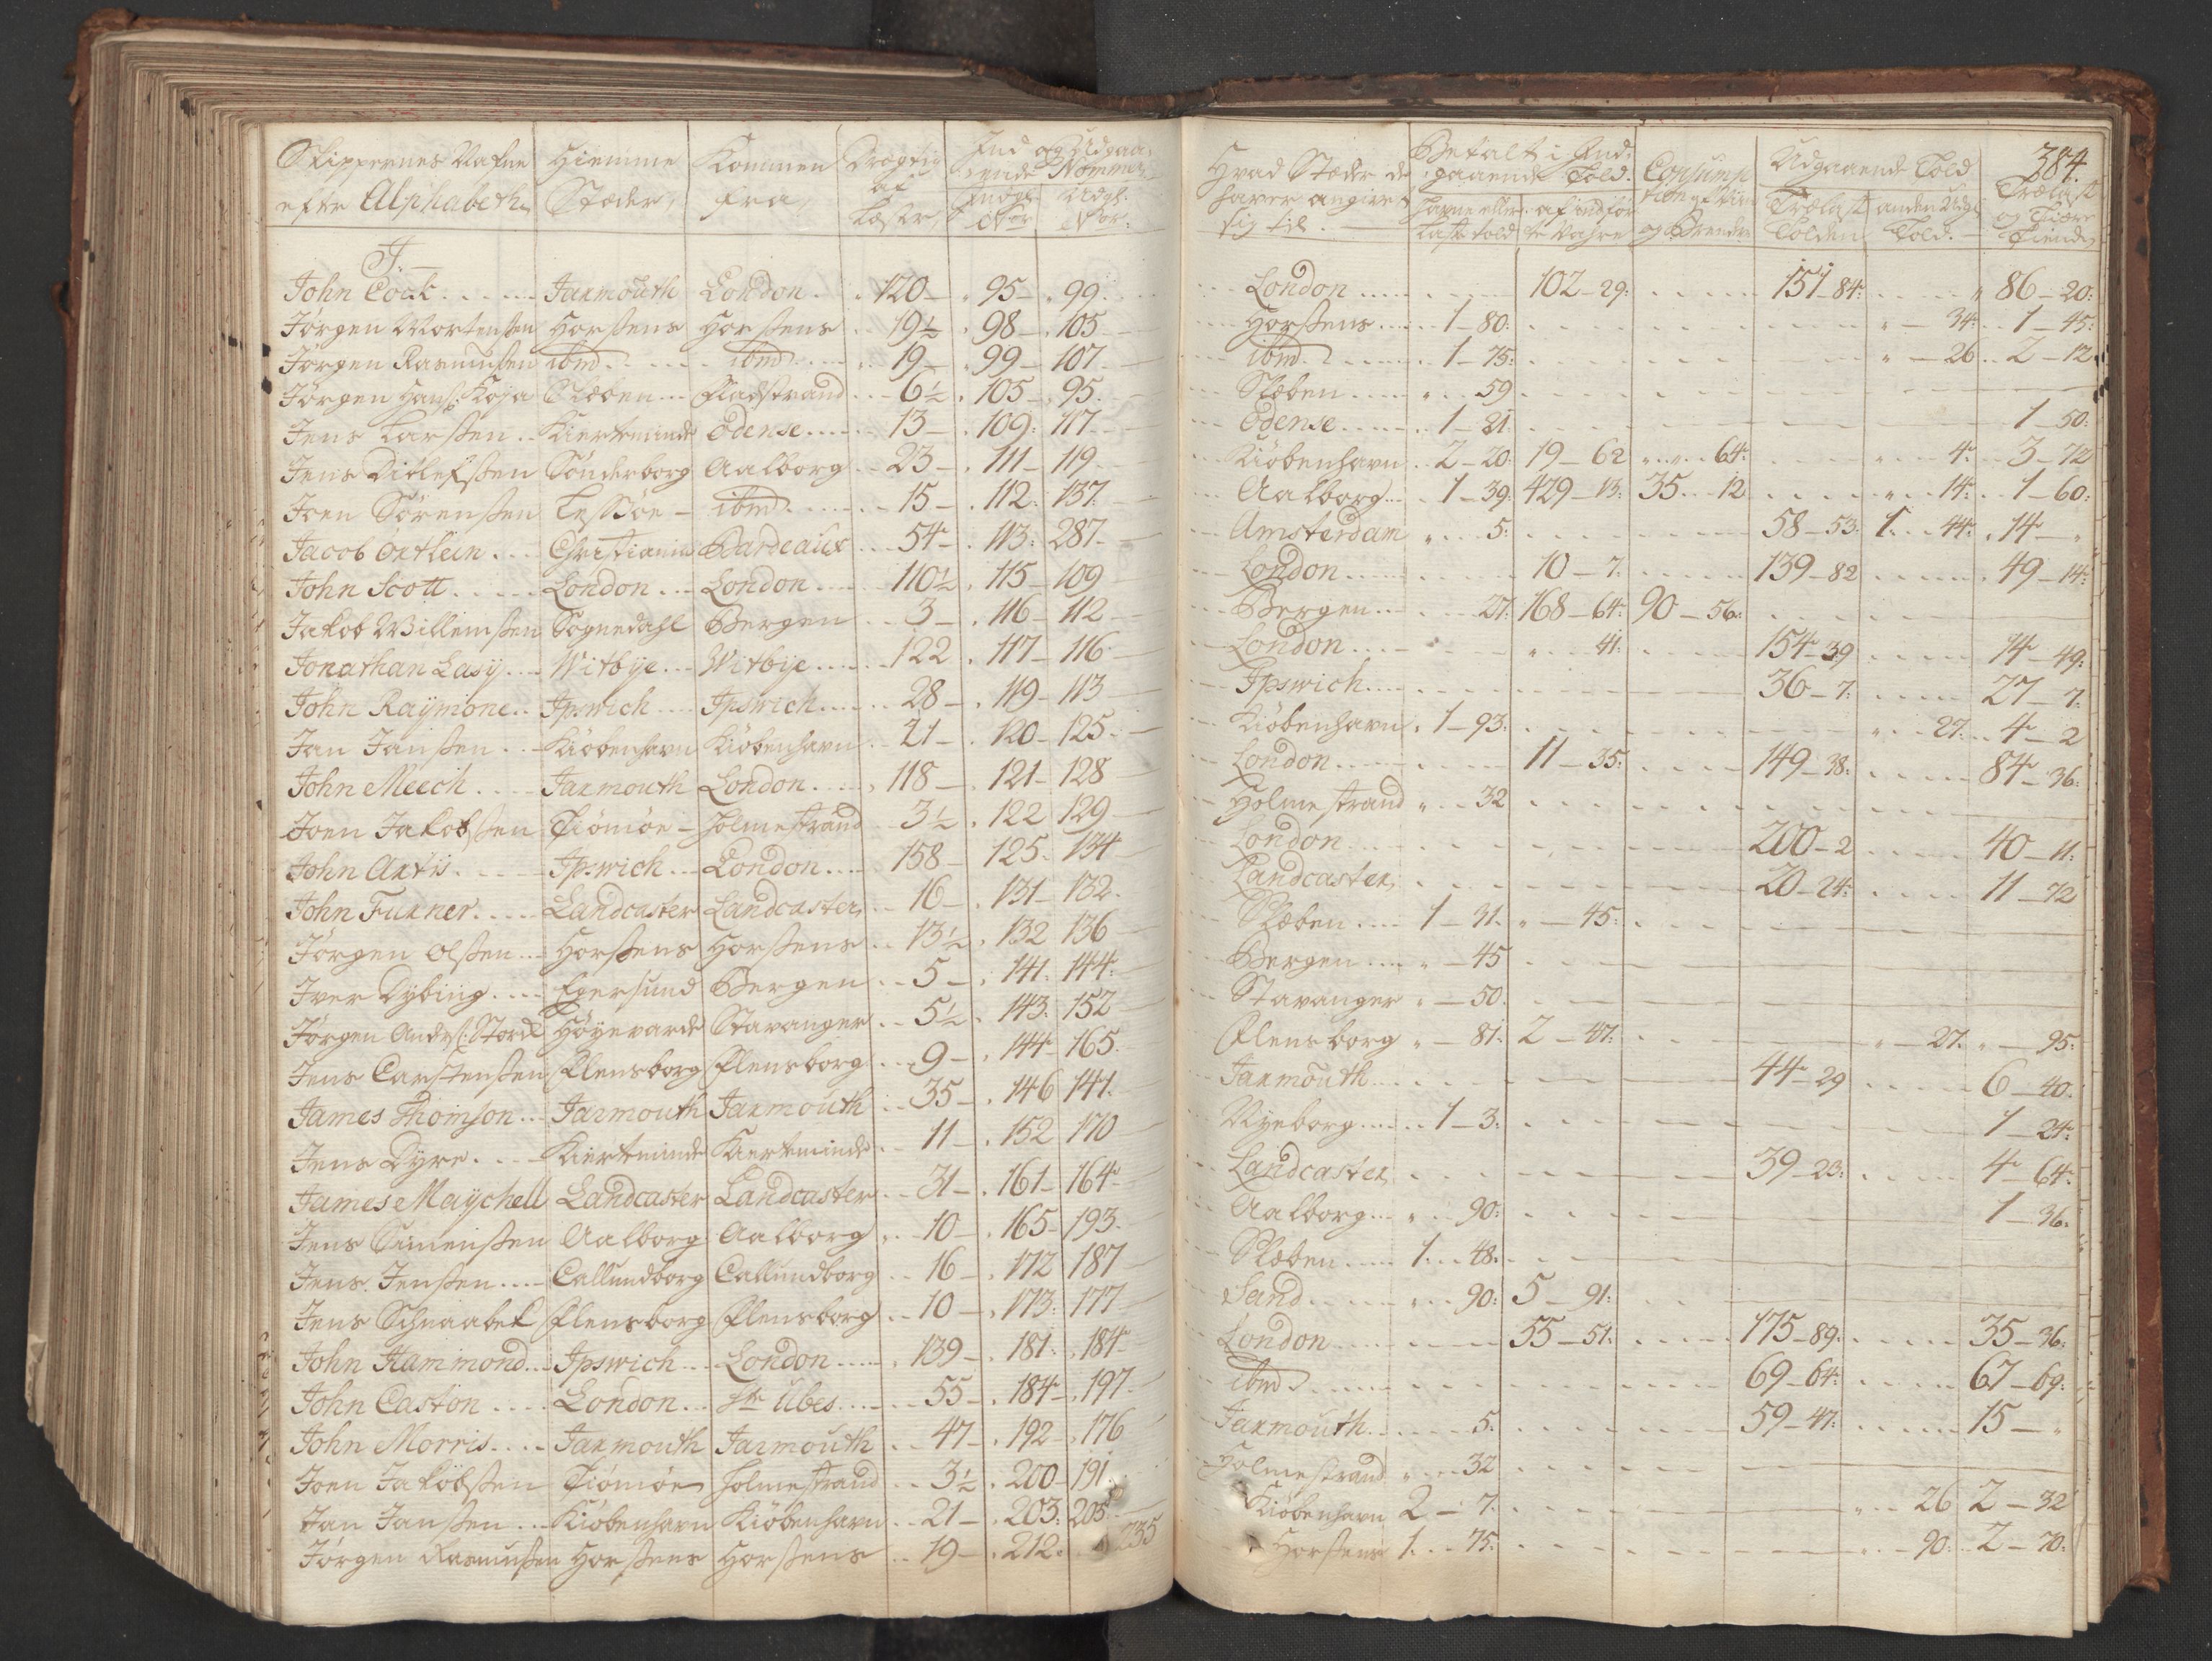 Skippernes Nafne Hiemme Kommen Drægtig Ind og Udgaa-
efter Alphabeth Stæder fra af Læster ende Nommer
Indg: No: Udg: No:
J.
John Cock Jarmouth London 120 95 99
Jørgen Mortensen Horsens Horsens 19½ 98 105
Jørgen Rasmussen ibm ibm 19 99 107
Jørgen Hans: Koja Sleben Fladstrand 6½ 105 95
Jens Larsen Kierteminde Odense 13 109 117
Jens Ditlefsen Sønderborg Aalborg 23 111 119
Joen Sørensen Lessøe ibm 15 112 137
Jacob Ortlein Christiania Bardeaux 54 113 287
John Scott London London 110½ 115 109
Jakob Willemsen Sognedahl Bergen 3 116 112
Jonathan Lasy Witbye Witbye 122 117 116
John Raymone Ipswich Ipswich 28 119 113
Jan Jansen Kiøbenhavn Kiøbenhavn 21 120 125
John Meech Jarmouth London 118 121 128
Joen Jakobsen Tiømøe Holmestrand 3½ 122 129
John Artis Ipswich London 158 125 134
John Furner Landcaster Landcaster 16 131 132
Jørgen Olsen Horsens Horsens 13½ 132 136
Iver Dybing Egersund Bergen 5 141 144
Jørgen Anders: Stord Høyevarde Stavanger 5½ 143 152
Jens Carstensen Flensborg Flensborg 9 144 165
James Thomson Jarmouth Jarmouth 35 146 141
Jens Dyre Kierteminde Kierteminde 11 152 170
James Maychell Landcaster Landcaster 31 161 164
Jens Simensen Aalborg Aalborg 10 165 193
Jens Jensen Callundborg Callundborg 16 172 187
Jens Schnaabel Flensborg Flensborg 10 173 177
John Hammond Ipswich London 139 181 184
John Caston London St Ubes 55 184 197
John Morris Jarmouth Jarmouth 47 192 176
Joen Jakobsen Tiømøe Holmestrand 3½ 200 191
Jan Jansen Kiøbenhavn Kiøbenhavn 21 203 205
Jørgen Rasmussen Horsens Horsens 19 212 235
384.
Hvad Stæder de Betalt i Ind- Consump- Udgaaende Told Trælast
haver angivet gaaende Told. tion af Viin Trælast anden Udg: og Tiære
sig til Havne eller Last told af indførte Vahre og Brændev: Tolden Told. Tiende
London 102-29 151-84 86-20
Horsens 1-80 34 1-45
ibm 1-75 26 2-12
Sleben 59
Odense 1-21 1-50
Kiøbenhavn 2-20 19-62 64 4 3-72
Aalborg 1-39 429-13 35-12 14 1-60
Amsterdam 5 58-53 1-44 14-
London 10-7 139-82 49-14
Bergen 27 168-64 90-56
London 41 154-39 14-49
Ipswich 36-7 27-7
Kiøbenhavn 1-93 27 4-2
London 11-35 149-38 84-36
Holmestrand 32
London 200-2 40-11
Landcaster 20-24 11-72
Sleben 1-31 45
Bergen 45
Stavanger 50
Flensborg 81 2-47 27 95
Jarmouth 44-29 6-40
Nyeborg 1-3 1-24
Landcaster 39-23 4-64
Aalborg 90 1-36
Sleben 1-48
Sand 90 5-91
London 55-51 175-89 35-36
ibm 69-64 67-69
Jarmouth 5 59-47 15-
Holmestrand 32
Kiøbenhavn 2-7 26 2-32
Horsens 1-75 90 2-70